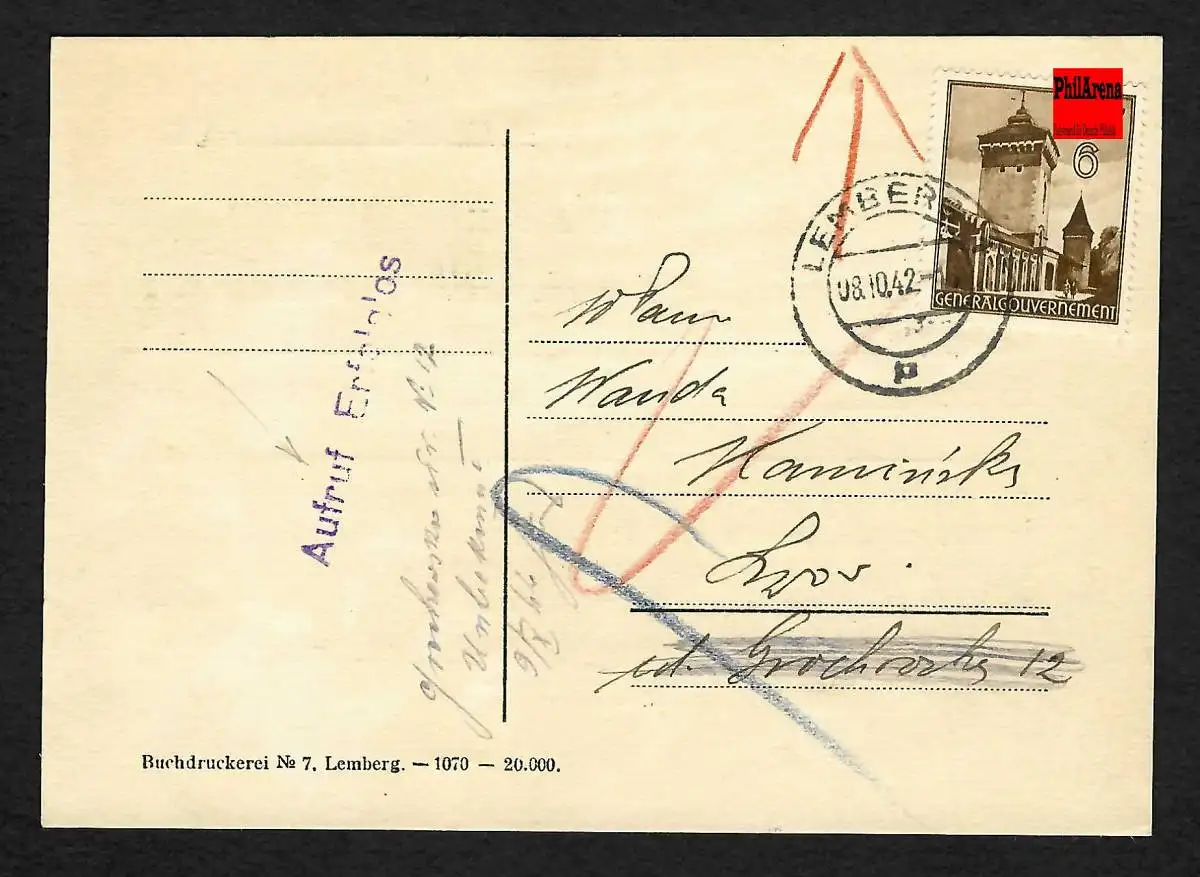 PhilArena
6
GENERALGOUVERNEMENT
LEMBERG
08.10.42
Aufruf Erfolglos
WPani
Wanda
Kamińska
Lwów.
ul. Grochowska 12
Nr. 12
Unbekannt
9/X 42
Buchdruckerei № 7, Lemberg. — 1070 — 20.000.